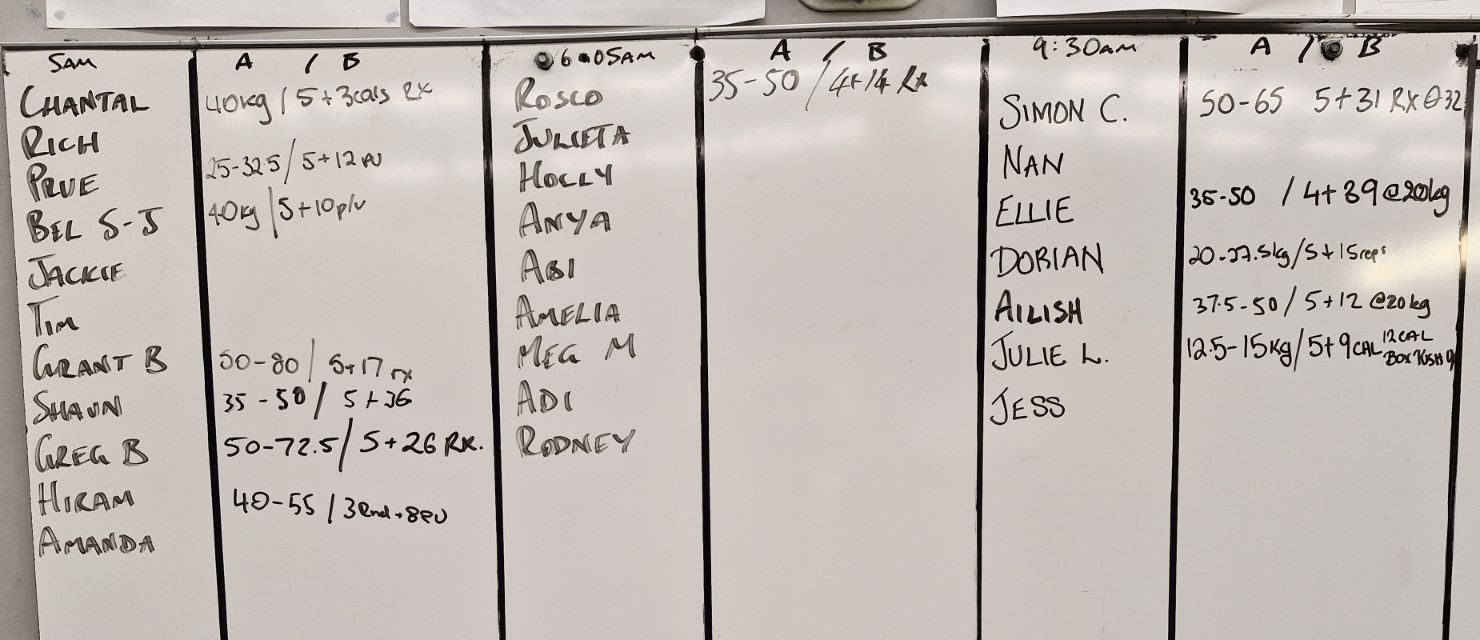 5AM A / B
CHANTAL 40kg / 5+3cals RX
RICH
PRUE 25-32.5 / 5+12 PU
BEL S-J 40kg / 5+10 p/u
JACKIE
TIM
GRANT B 50-80 / 5+17 rx
SHAUN 35-50 / 5+36
GREG B 50-72.5 / 5+26 RX.
HIRAM 40-55 / 3Rnd+8PU
AMANDA
6:05AM A / B
ROSCO 35-50 / 4+14 Rx
JULIETA
HOLLY
ANYA
ABI
AMELIA
MEG M
ADI
RODNEY
9:30AM A / B
SIMON C. 50-65 5+31 RX @32
NAN
ELLIE 35-50 / 4+39 @20kg
DORIAN 20-27.5kg / 5+15reps
AILISH 37.5-50 / 5+12 @20kg
JULIE L. 12.5-15kg / 5+9CAL 12CAL
BOX
JESS